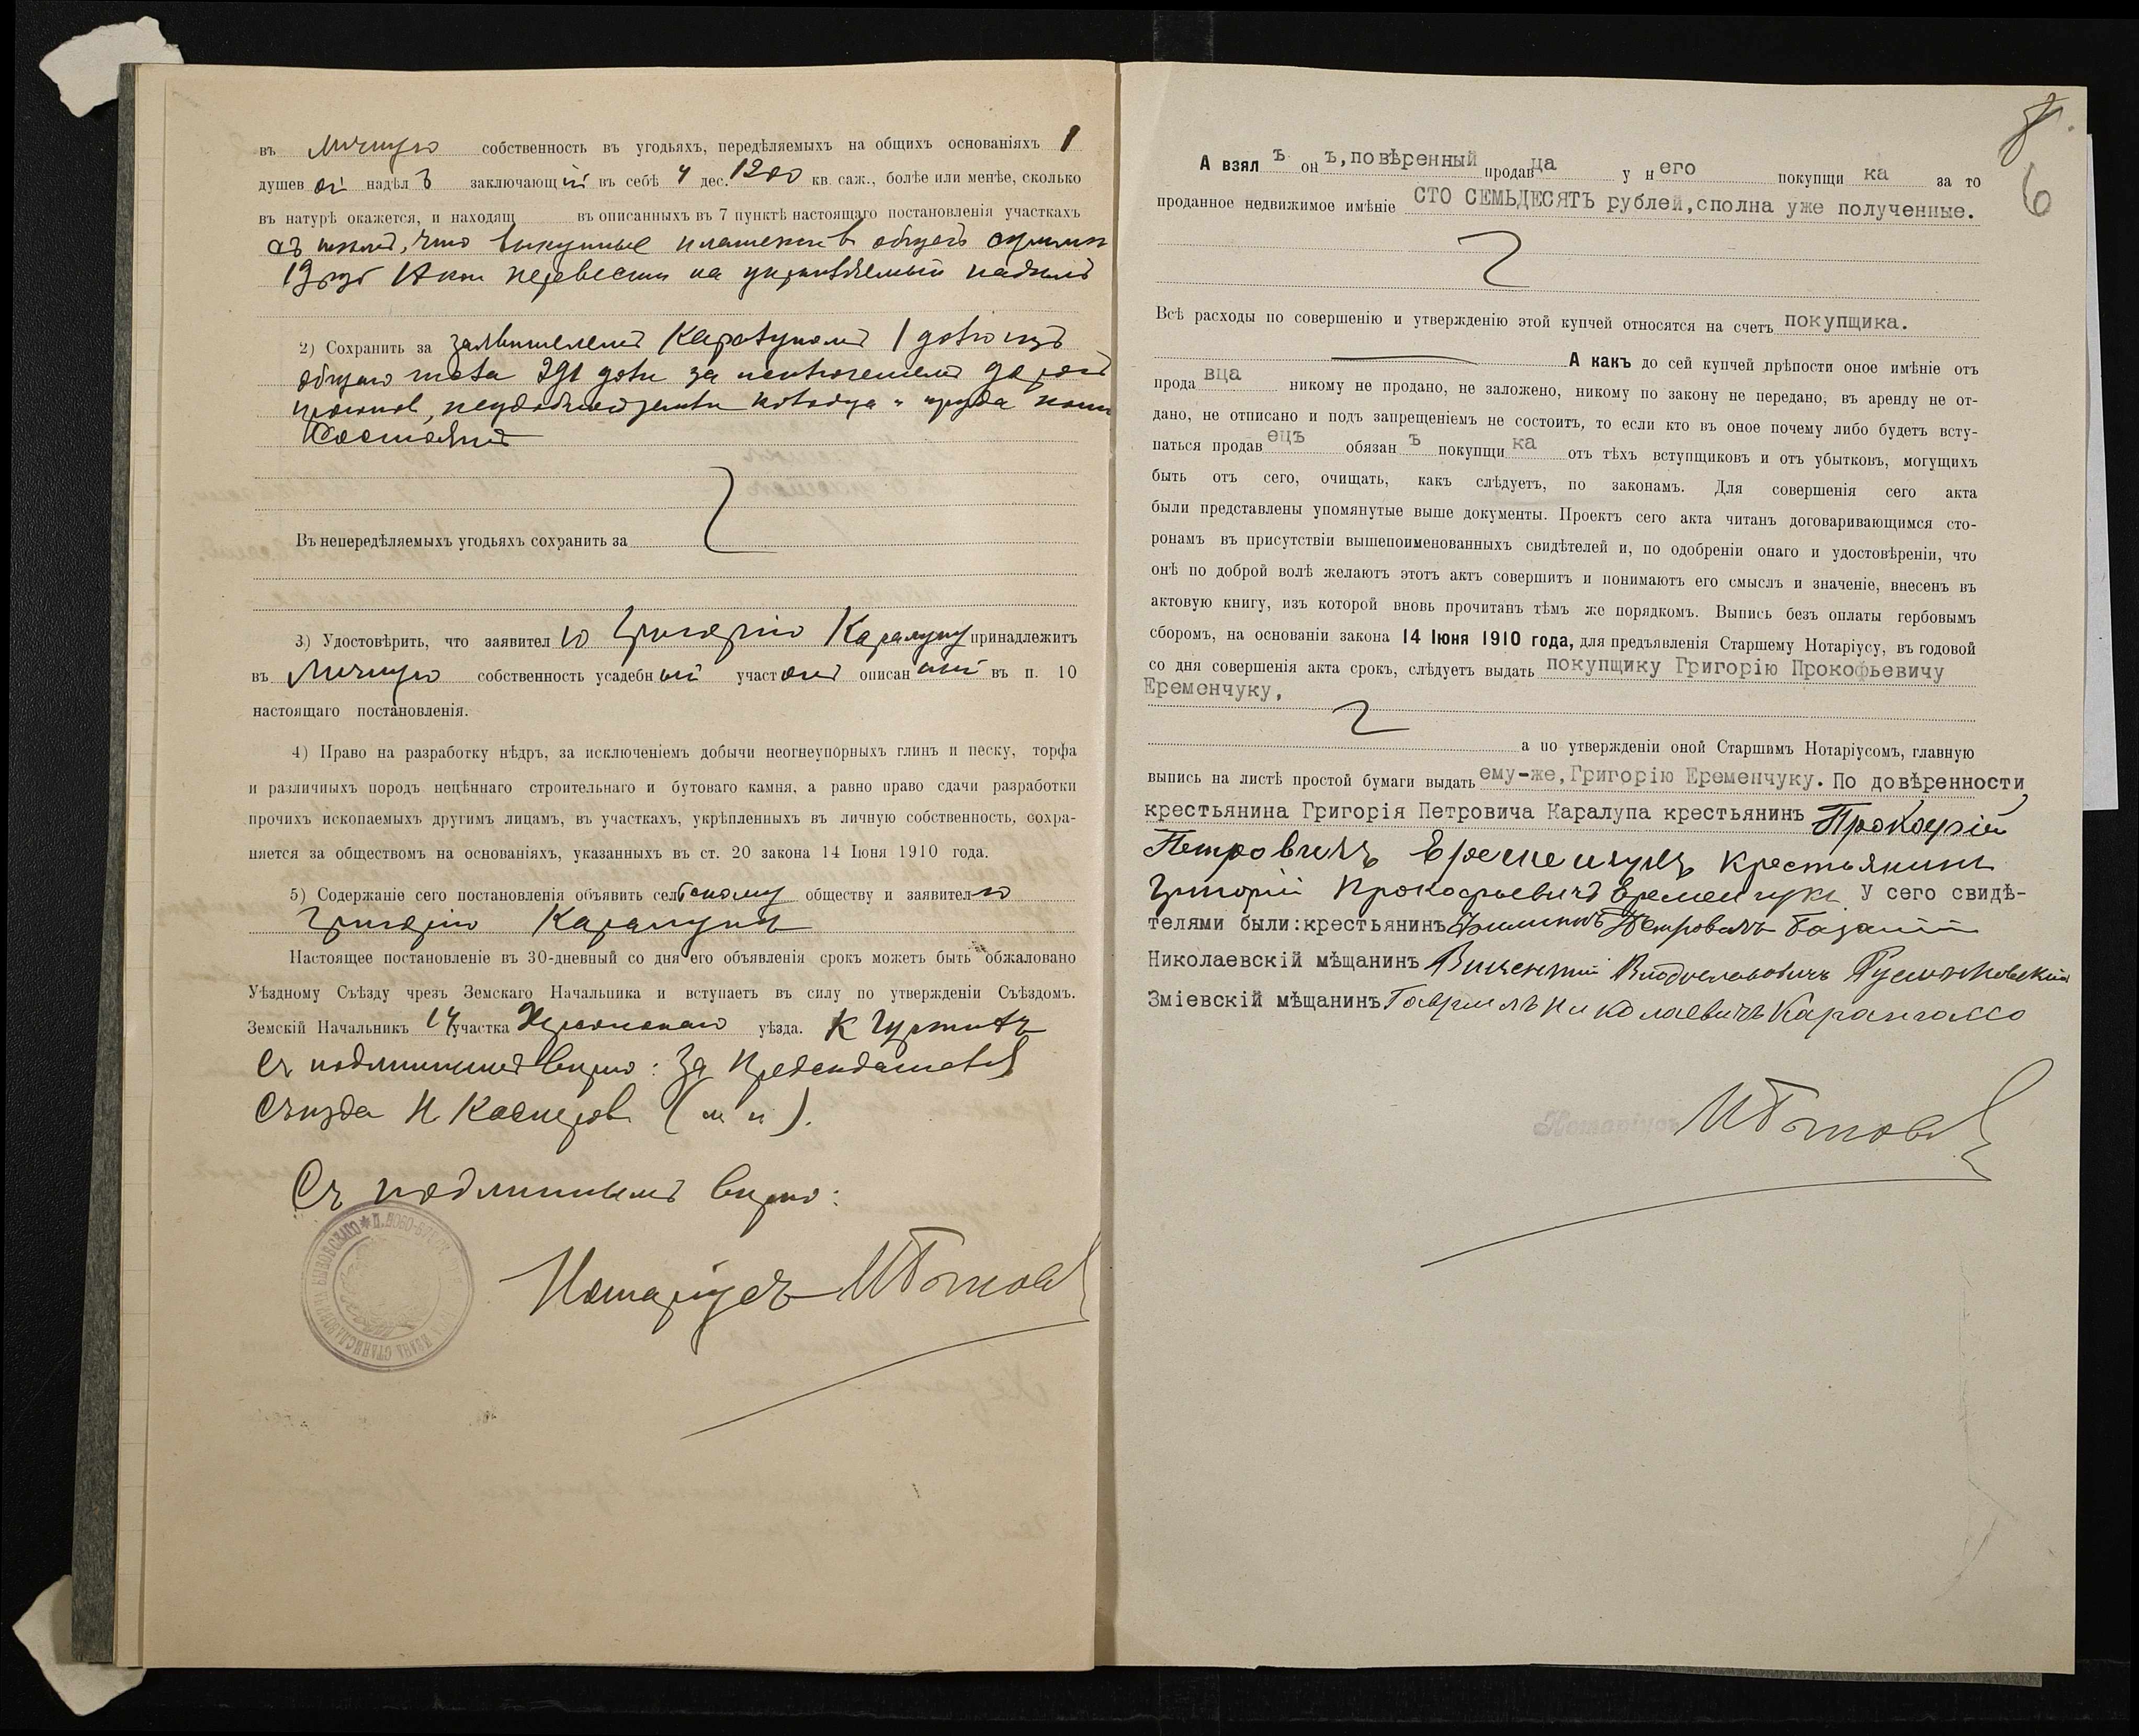 въ личную собственность въ угодьяхъ, передѣляемыхъ на общихъ основаніяхъ 1
душев ой надѣл ъ заключающ ій въ себѣ 4 дес. 1200 кв. саж., болѣе или менѣе, сколько
въ натурѣ окажется, и находящ въ описанныхъ въ 7 пунктѣ настоящаго постановленія участкахъ
съ тѣмъ, что выкупные платежи въ общей суммѣ
19 руб 14 коп перевести на укрѣпляемый надѣлъ
2) Сохранить за заявителемъ Каралупомъ 1 долю изъ
общаго числа 391 доли за исключеніемъ дорогъ
неудобной земли колодца и пруда
3) Удостовѣрить, что заявител ю Григорію Каралупу принадлежитъ
Въ непередѣляемыхъ угодьяхъ сохранить за
въ личную собственность усадебн ый участ окъ описан ный въ п. 10
настоящаго постановленія.
4) Право на разработку нѣдръ, за исключеніемъ добычи неогнеупорныхъ глинъ и песку, торфа
и различныхъ породъ нецѣннаго строительнаго и бутоваго камня, а равно право сдачи разработки
прочихъ ископаемыхъ другимъ лицамъ, въ участкахъ, укрѣпленныхъ въ личную собственность, сохра-
няется за обществомъ на основаніяхъ, указанныхъ въ ст. 20 закона 14 Іюня 1910 года.
5) Содержаніе сего постановленія объявить сельскому обществу и заявител ю
Григорію Каралупу
Настоящее постановленіе въ 30-дневный со дня его объявленія срокъ можетъ быть обжаловано
Уѣздному Съѣзду чрезъ Земскаго Начальника и вступаетъ въ силу по утвержденіи Съѣздомъ.
Земскій Начальникъ 14 участка Херсонскаго уѣзда. К
Съ подлиннымъ вѣрно: За Предсѣдателя
Съѣзда Н Касперов (м п).
Съ подлиннымъ вѣрно:
Нотаріусъ
8.
6
А взял ъ он ъ, повѣренный продав ца у н его покупщи ка за то
проданное недвижимое имѣніе СТО СЕМЬДЕСЯТЪ рублей, сполна уже полученные.
Всѣ расходы по совершенію и утвержденію этой купчей относятся на счетъ покупщика.
А какъ до сей купчей крѣпости оное имѣніе отъ
прода вца никому не продано, не заложено, никому по закону не передано, въ аренду не от-
дано, не отписано и подъ запрещеніемъ не состоитъ, то если кто въ оное почему либо будетъ всту-
паться продав ецъ обязан ъ покупщи ка отъ тѣхъ вступщиковъ и отъ убытковъ, могущихъ
быть отъ сего, очищать, какъ слѣдуетъ, по законамъ. Для совершенія сего акта
были представлены упомянутые выше документы. Проектъ сего акта читанъ договаривающимся сто-
ронамъ въ присутствіи вышепоименованныхъ свидѣтелей и, по одобреніи онаго и удостовѣреніи, что
онѣ по доброй волѣ желаютъ этотъ актъ совершить и понимаютъ его смыслъ и значеніе, внесенъ въ
актовую книгу, изъ которой вновь прочитанъ тѣмъ же порядкомъ. Выпись безъ оплаты гербовымъ
сборомъ, на основаніи закона 14 Іюня 1910 года, для предъявленія Старшему Нотаріусу, въ годовой
со дня совершенія акта срокъ, слѣдуетъ выдать покупщику Григорію Прокофьевичу
Еременчуку,
а по утвержденіи оной Старшимъ Нотаріусомъ, главную
выпись на листѣ простой бумаги выдать ему-же, Григорію Еременчуку. По довѣренности
крестьянина Григорія Петровича Каралупа крестьянинъ Прокофій
Петровичъ Еременчукъ крестьянинъ
Григорій Прокофьевичъ Еременчукъ У сего свидѣ-
телями были: крестьянинъ Филиппъ Петровичъ
Николаевскій мѣщанинъ Викентій
Зміевскій мѣщанинъ Гавриилъ Николаевичъ
Нотаріусъ